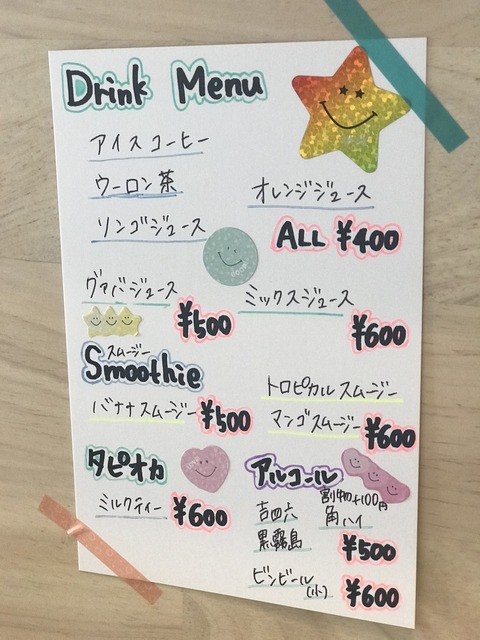 Drink Menu
アイスコーヒー
ウーロン茶
オレンジジュース
リンゴジュース
ALL ¥400
グァバジュース
¥500
ミックスジュース
¥600
スムージー
Smoothie
バナナスムージー ¥500
トロピカルスムージー
マンゴスムージー
¥600
タピオカ
ミルクティー ¥600
アルコール
割物+100円
吉四六 角ハイ
黒霧島
¥500
ビンビール(小) ¥600